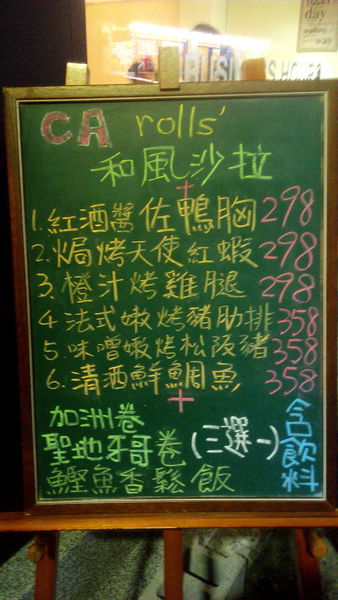 CA rolls'
和風沙拉
+
1. 紅酒醬佐鴨胸 298
2. 焗烤天使紅蝦 298
3. 橙汁烤雞腿 298
4 法式嫩烤豬肋排 358
5 味噌嫩烤松阪豬 358
6. 清酒鮮鯛魚 358
+
加洲卷
聖地牙哥卷 (三選一)
鰹魚香鬆飯
含飲料